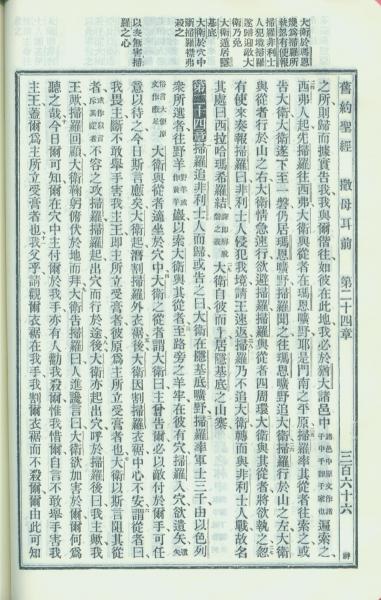 舊約聖經 撒母耳前 第二十四章 三百六十六
之所則歸而據實告我我與爾偕往如彼在此地我必於猶大諸邑中諸邑中原文作諸千中千即千家也遍索之
西弗人起先掃羅往西弗大衛與從者在瑪恩曠野耶是門南之平原掃羅率其從者往索之或
告大衛大衛遂下至一磐仍居瑪恩曠野掃羅聞之往瑪恩曠野追大衛掃羅行於山之左大衛
與從者行於山之右大衛情急速行欲避掃羅掃羅與從者四周環大衛與其從者將欲執之忽
有使來奏報掃羅曰非利士人侵犯我境請王速返掃羅乃不追大衛轉而與非利士人戰故名
其處曰西拉哈瑪希羅結大衛自彼而上居隱基底之山寨
第二十四章掃羅追非利士人而歸或告之曰大衛在隱基底曠野掃羅率軍士三千由以色列
衆所選者往野羊野羊或作山羊巖以索大衛與其從者至路旁之羊牢在彼有穴掃羅入穴欲遺矢
大衛與從者適坐於穴中大衛之從者謂大衛曰主曾告爾必以敵付於爾手可任
意以待之今日斯言應矣大衛起潛割掃羅外衣裾後大衛因割掃羅衣裾中心不安謂從者曰
我畏主斷不敢舉手害我主王即主所立受膏者彼原爲主所立受膏者也大衛以斯言阻其從
者不容之攻掃羅掃羅起出穴而行於途後大衛亦起出穴呼於掃羅後曰我主歟我
王歟掃羅回顧大衛鞠躬俯伏於地而拜大衛告掃羅曰人進讒言曰大衛欲加害於爾爾何爲
聽之哉今日爾可知爾在穴中主付爾於我手亦有人勸我殺爾惟我惜爾自言不敢舉手害我
主王蓋爾爲主所立受膏者也我父乎請觀爾衣裾在我手我割爾衣裾而不殺爾爾由此可知
大衛於瑪恩
幾爲掃羅所
執忽有使報
掃羅非利士
人犯境掃羅
遂歸迎敵大
衛乃免
大衛遁居隱
基底
大衛於穴中
割掃羅衣裾弗
殺之
以表無害掃
羅之心